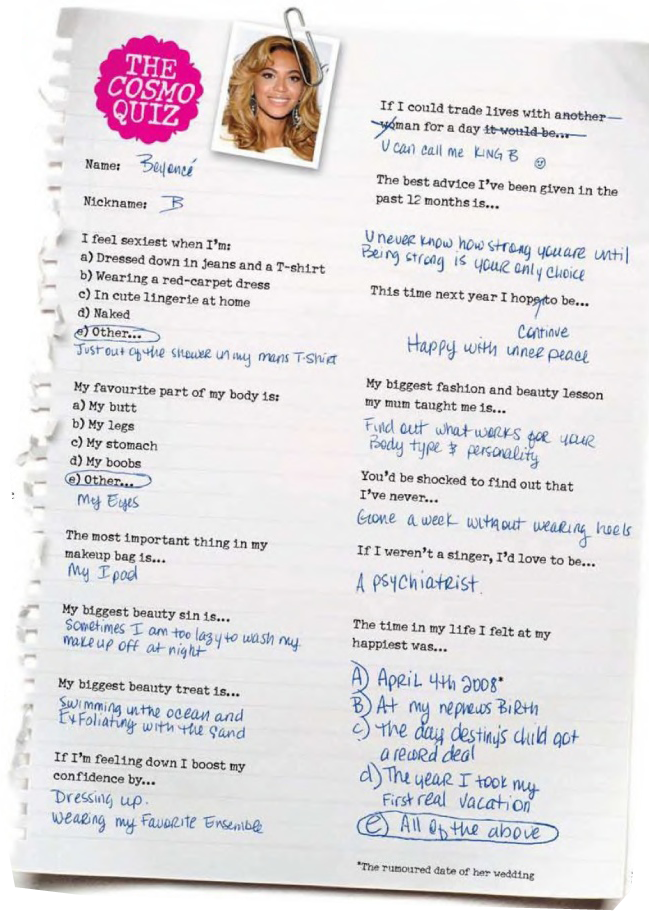 THE
COSMO
QUIZ
Name: Beyoncé
Nickname: B
I feel sexiest when I'm:
a) Dressed down in jeans and a T-shirt
b) Wearing a red-carpet dress
c) In cute lingerie at home
d) Naked
e) Other...
Just out of the shower in my mans T-Shirt
My favourite part of my body is:
a) My butt
b) My legs
c) My stomach
d) My boobs
e) Other...
My Eyes
The most important thing in my
makeup bag is...
My Ipod
My biggest beauty sin is...
Sometimes I am too lazy to wash my
makeup off at night
My biggest beauty treat is...
Swimming in the ocean and
Exfoliating with the sand
If I'm feeling down I boost my
confidence by...
Dressing up.
Wearing my Favorite Ensemble
If I could trade lives with another
woman for a day it would be...
U can call me KING B
The best advice I've been given in the
past 12 months is...
U never know how strong you are until
Being strong is your only choice
This time next year I hope to be...
Continue
Happy with inner peace
My biggest fashion and beauty lesson
my mum taught me is...
Find out what works for your
Body type & personality
You'd be shocked to find out that
I've never...
Gone a week without wearing heels
If I weren't a singer, I'd love to be...
A psychiatrist.
The time in my life I felt at my
happiest was...
A) April 4th 2008*
B) At my nephews Birth
c) The day destinys child got
a record deal
d) The year I took my
First real vacation
e) All of the above
*The rumoured date of her wedding